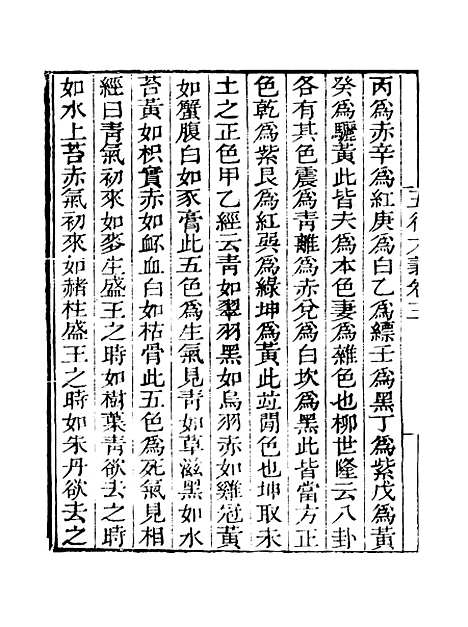 五行大義卷三
丙爲赤辛爲紅庚爲白乙爲縹壬爲黑丁爲紫戊爲黃
癸爲驪黃此皆夫爲本色妻爲雜色也柳世隆云八卦
各有其色震爲青離爲赤兌爲白坎爲黑此皆當方正
色乾爲紫艮爲紅巽爲綠坤爲黃此竝閒色也坤取未
土之正色甲乙經云青如翠羽黑如烏羽赤如雞冠黃
如蟹腹白如豕膏此五色爲生氣見青如草滋黑如水
苔黃如枳實赤如衃血白如枯骨此五色爲死氣見相
經曰青氣初來如麥生盛王之時如樹葉青欲去之時
如水上苔赤氣初來如赭柱盛王之時如朱丹欲去之